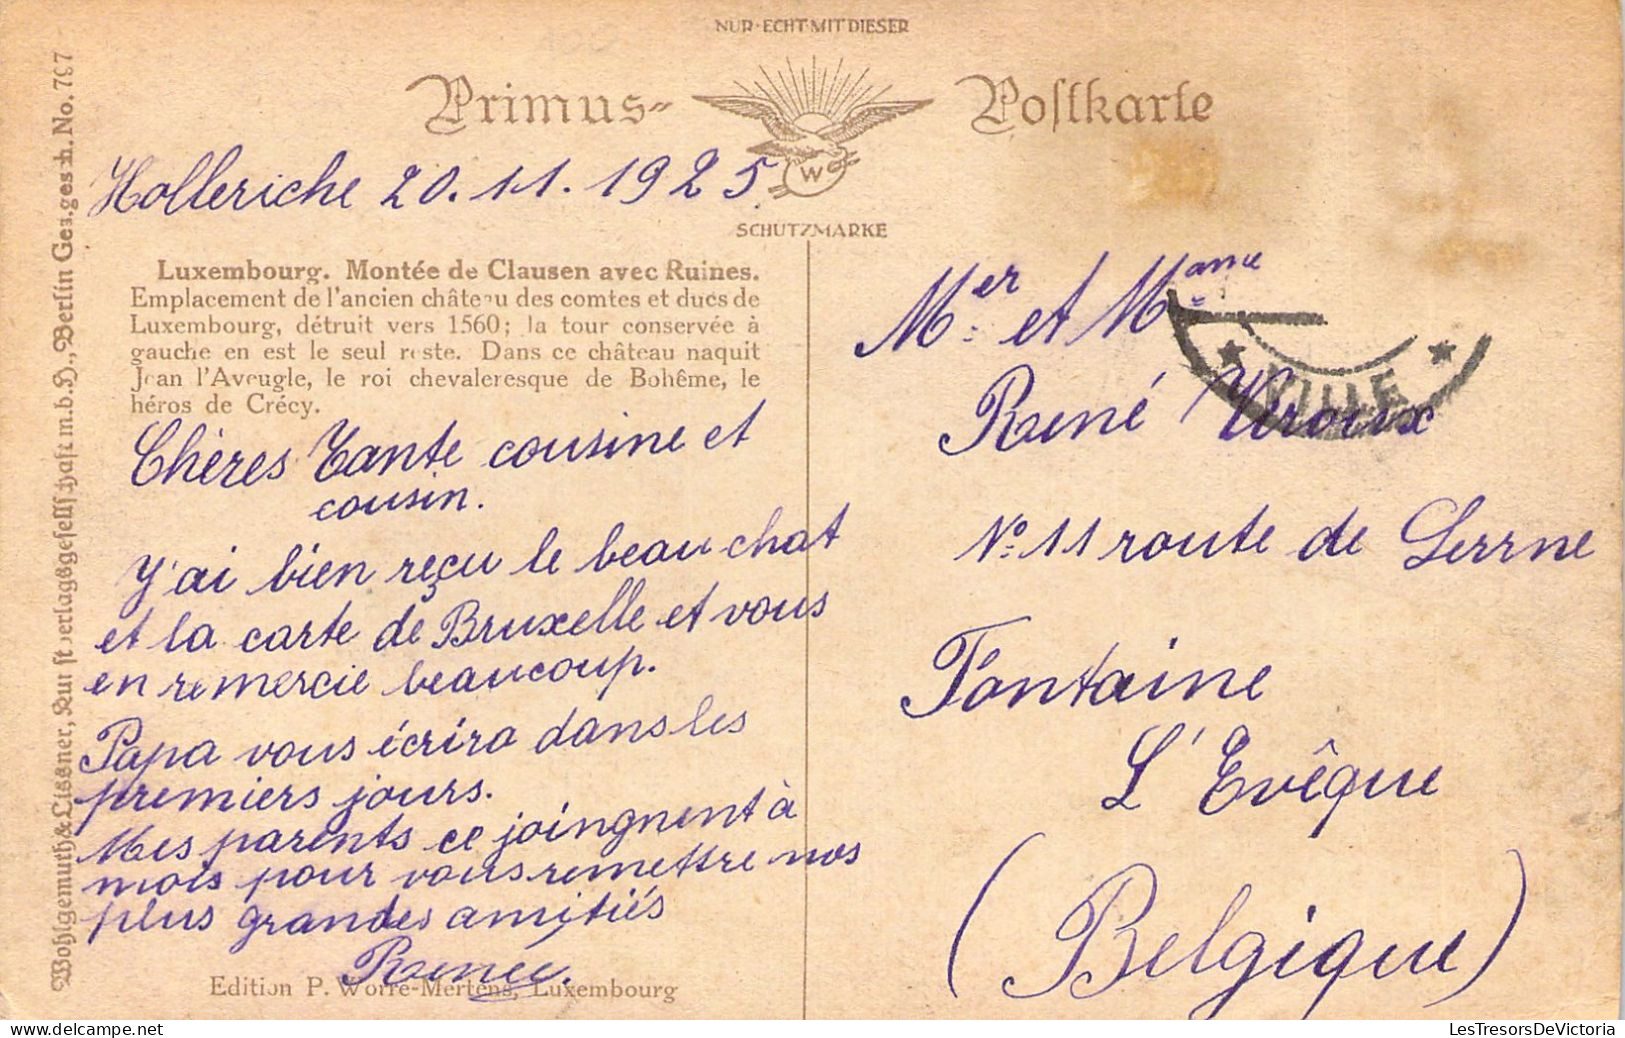 NUR·ECHT·MIT DIESER
Primus- Postkarte
W
SCHUTZMARKE
Holleriche 20.11.1925
Luxembourg. Montée de Clausen avec Ruines.
Emplacement de l'ancien château des comtes et ducs de
Luxembourg, détruit vers 1560; la tour conservée à
gauche en est le seul reste. Dans ce château naquit
Jean l'Aveugle, le roi chevaleresque de Bohême, le
héros de Crécy.
Chères Tante cousine et
cousin.
J'ai bien reçu le beau chat
et la carte de Bruxelle et vous
en remercie beaucoup.
Papa vous écrira dans les
premiers jours.
Mes parents ce joingnent à
mois pour vous remettre nos
plus grandes amitiés
Renée.
Edition P. Worré-Mertens, Luxembourg
Wohlgemuth & Lissner, Kunstverlagsgesellschaft m.b.H., Berlin Ges. gesch. No. 797
Mer et Mame
René Viroux
VILLE
No 11 route de Lerrne
Fontaine
L'Evêque
(Belgique)
LesTresorsDeVictoria